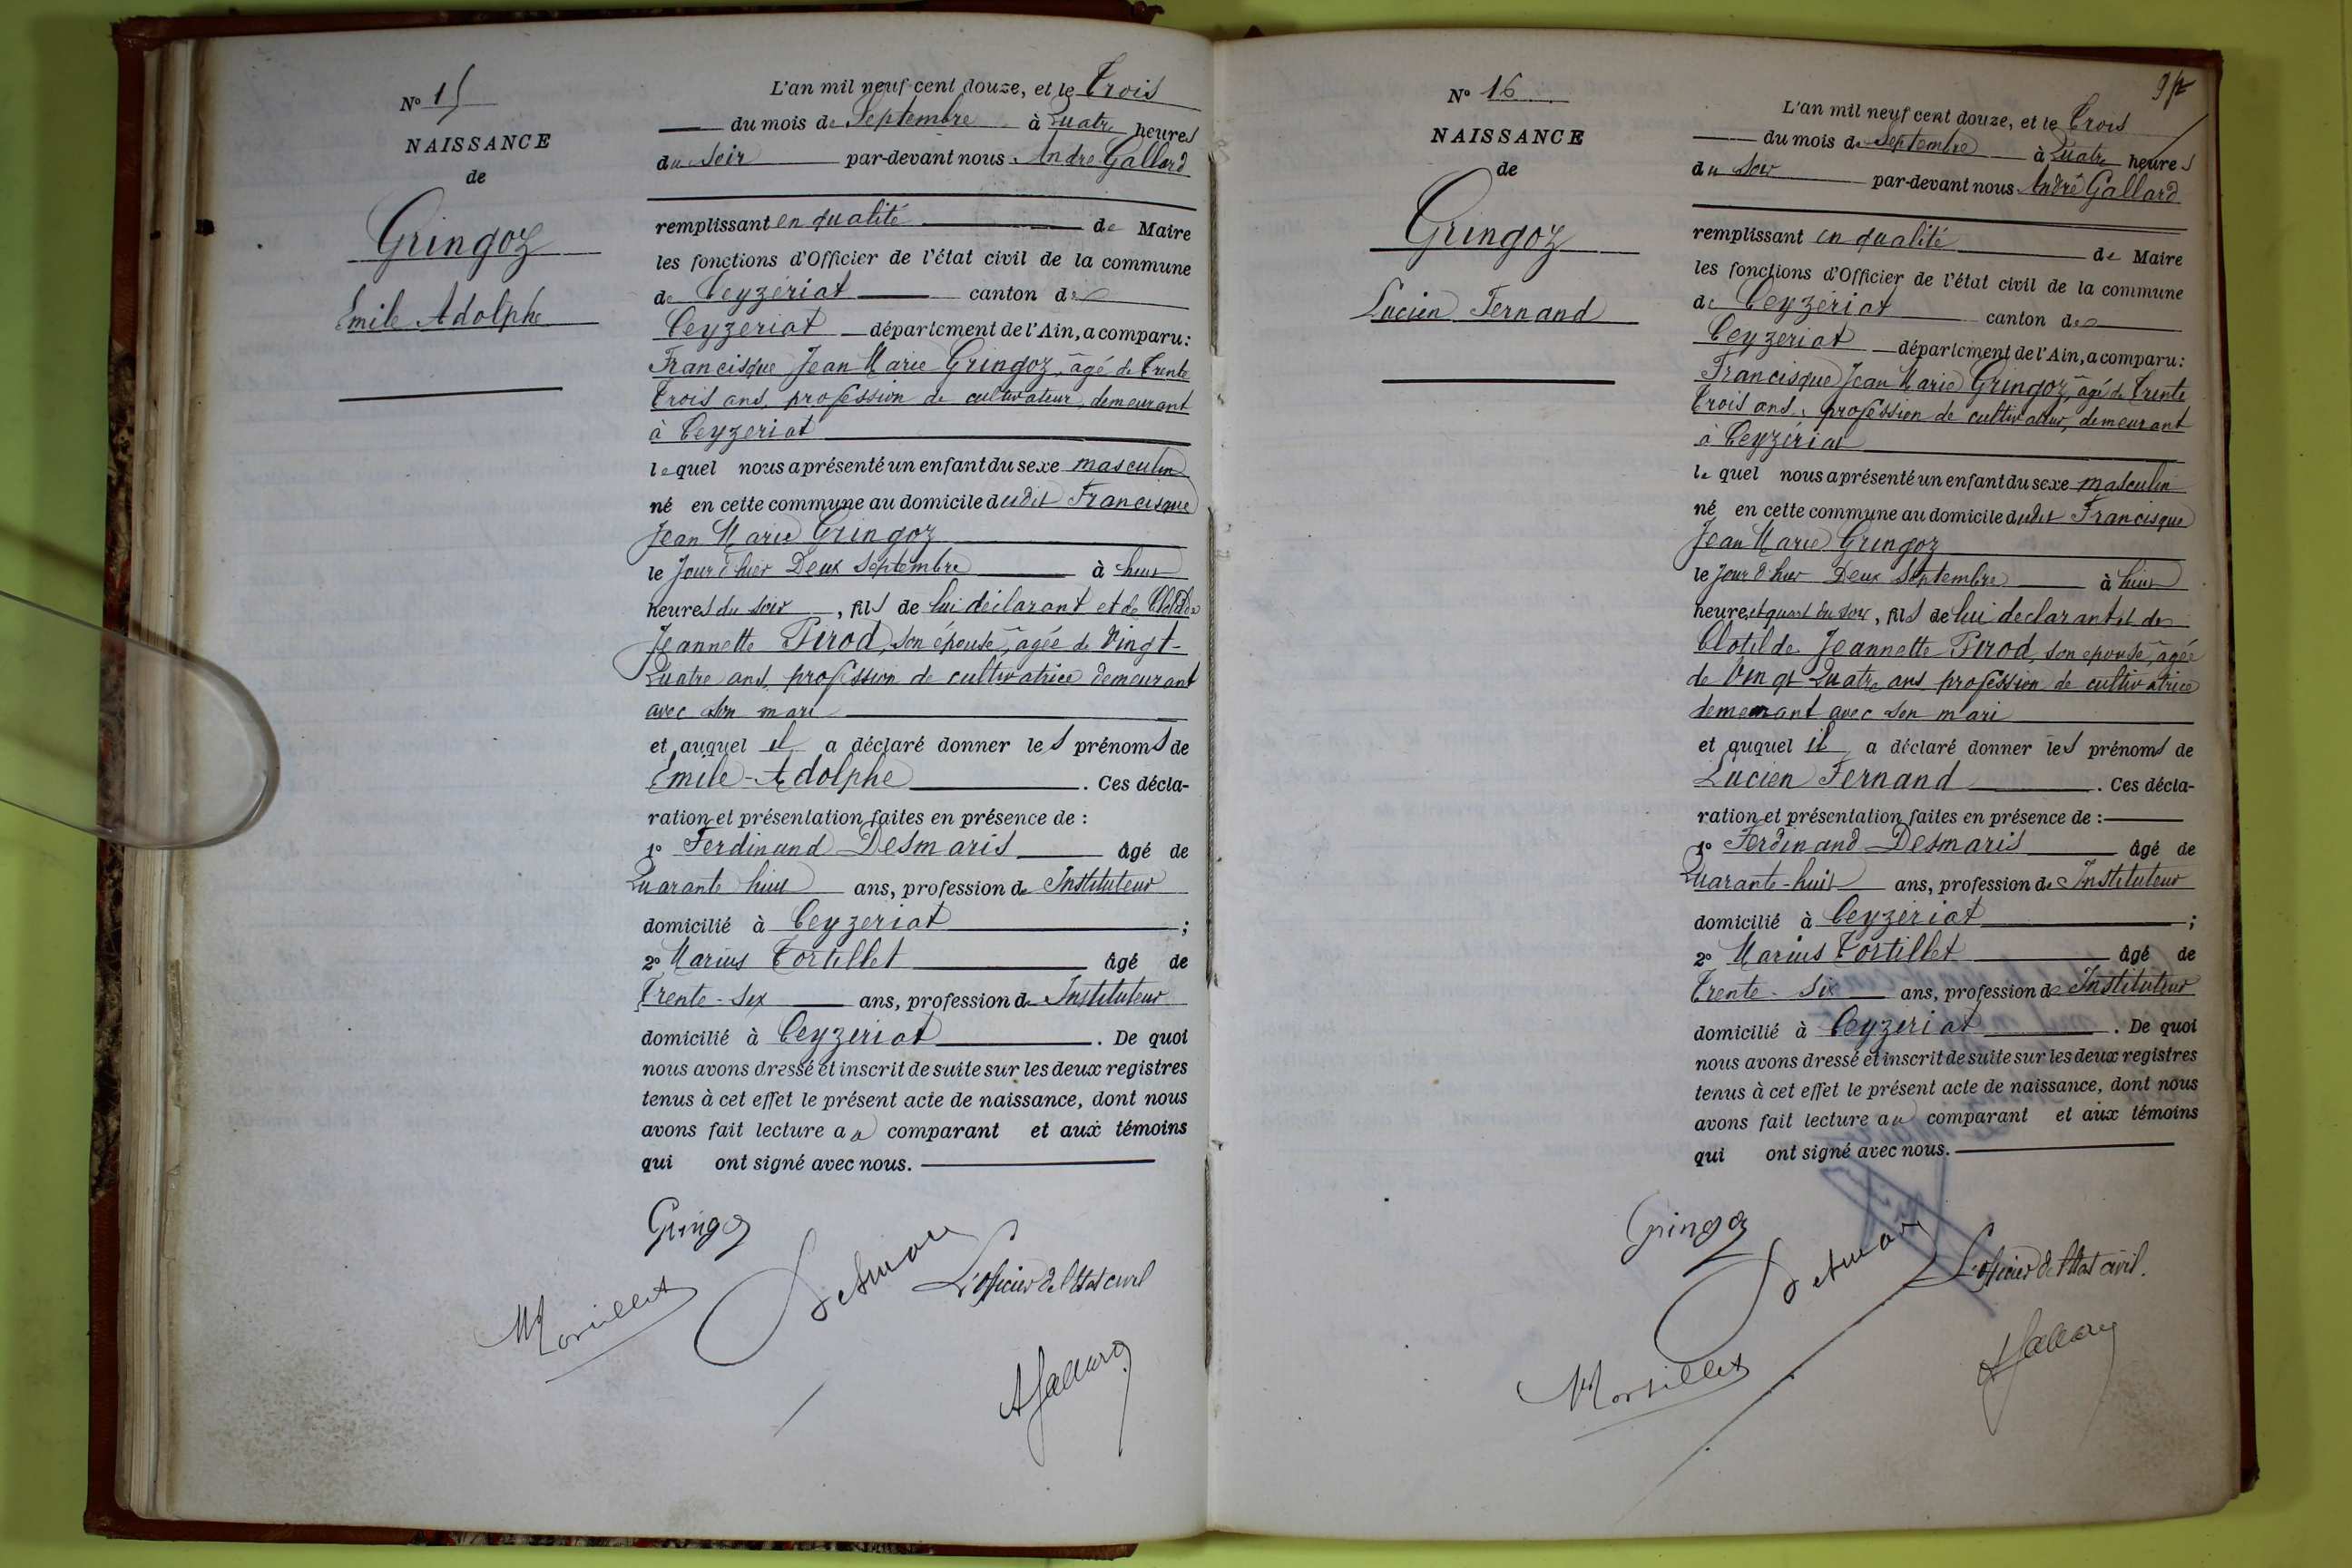 N° 15
NAISSANCE
de
Gringoz
Emile Adolphe
L'an mil neuf cent douze, et le Trois
du mois de Septembre à Quatre heures
du soir par-devant nous André Gallard
remplissant en qualité de Maire
les fonctions d'Officier de l'état civil de la commune
de Ceyzériat canton de
Ceyzeriat département de l'Ain, a comparu :
Francisque Jean Marie Gringoz, âgé de Trente
Trois ans, profession de cultivateur, demeurant
à Ceyzeriat
lequel nous a présenté un enfant du sexe masculin
né en cette commune au domicile dudit Francisque
Jean Marie Gringoz
le Jour d'hier Deux Septembre à huit
heures du soir, fils de lui déclarant et de Clotilde
Jeannette Perod, son épouse, âgée de Vingt-
Quatre ans, profession de cultivatrice demeurant
avec son mari
et auquel il a déclaré donner les prénoms de
Emile-Adolphe. Ces décla-
ration et présentation faites en présence de :
1° Ferdinand Desmaris âgé de
Quarante huit ans, profession de Instituteur
domicilié à Ceyzeriat ;
2° Marius Tortillet âgé de
Trente-six ans, profession de Instituteur
domicilié à Ceyzeriat. De quoi
nous avons dressé et inscrit de suite sur les deux registres
tenus à cet effet le présent acte de naissance, dont nous
avons fait lecture au comparant et aux témoins
qui ont signé avec nous.
Gringoz
Desmaris
L'officier de l'Etat civil
MTortillet
AGallard
N° 16
NAISSANCE
de
Gringoz
Lucien Fernand
L'an mil neuf cent douze, et le Trois
du mois de Septembre à Quatre heures
du soir par-devant nous André Gallard
remplissant en qualité de Maire
les fonctions d'Officier de l'état civil de la commune
de Ceyzériat canton de
Ceyzeriat département de l'Ain, a comparu :
Francisque Jean Marie Gringoz, âgé de Trente
Trois ans, profession de cultivateur, demeurant
à Ceyzériat
lequel nous a présenté un enfant du sexe masculin
né en cette commune au domicile dudit Francisque
Jean Marie Gringoz
le Jour d'hier Deux Septembre à huit
heures et quart du soir, fils de lui declarant et de
Clotilde Jeannette Perod, son epouse, âgée
de Vingt Quatre ans profession de cultivatrice
demeurant avec son mari
et auquel il a déclaré donner les prénoms de
Lucien Fernand. Ces décla-
ration et présentation faites en présence de :
1° Ferdinand Desmaris âgé de
Quarante-huit ans, profession de Instituteur
domicilié à Ceyzériat ;
2° Marius Tortillet âgé de
Trente-Six ans, profession de Instituteur
domicilié à Ceyzeriat. De quoi
nous avons dressé et inscrit de suite sur les deux registres
tenus à cet effet le présent acte de naissance, dont nous
avons fait lecture au comparant et aux témoins
qui ont signé avec nous.
Gringoz
Desmaris
L'officier de l'Etat civil.
MTortillet
AGallard